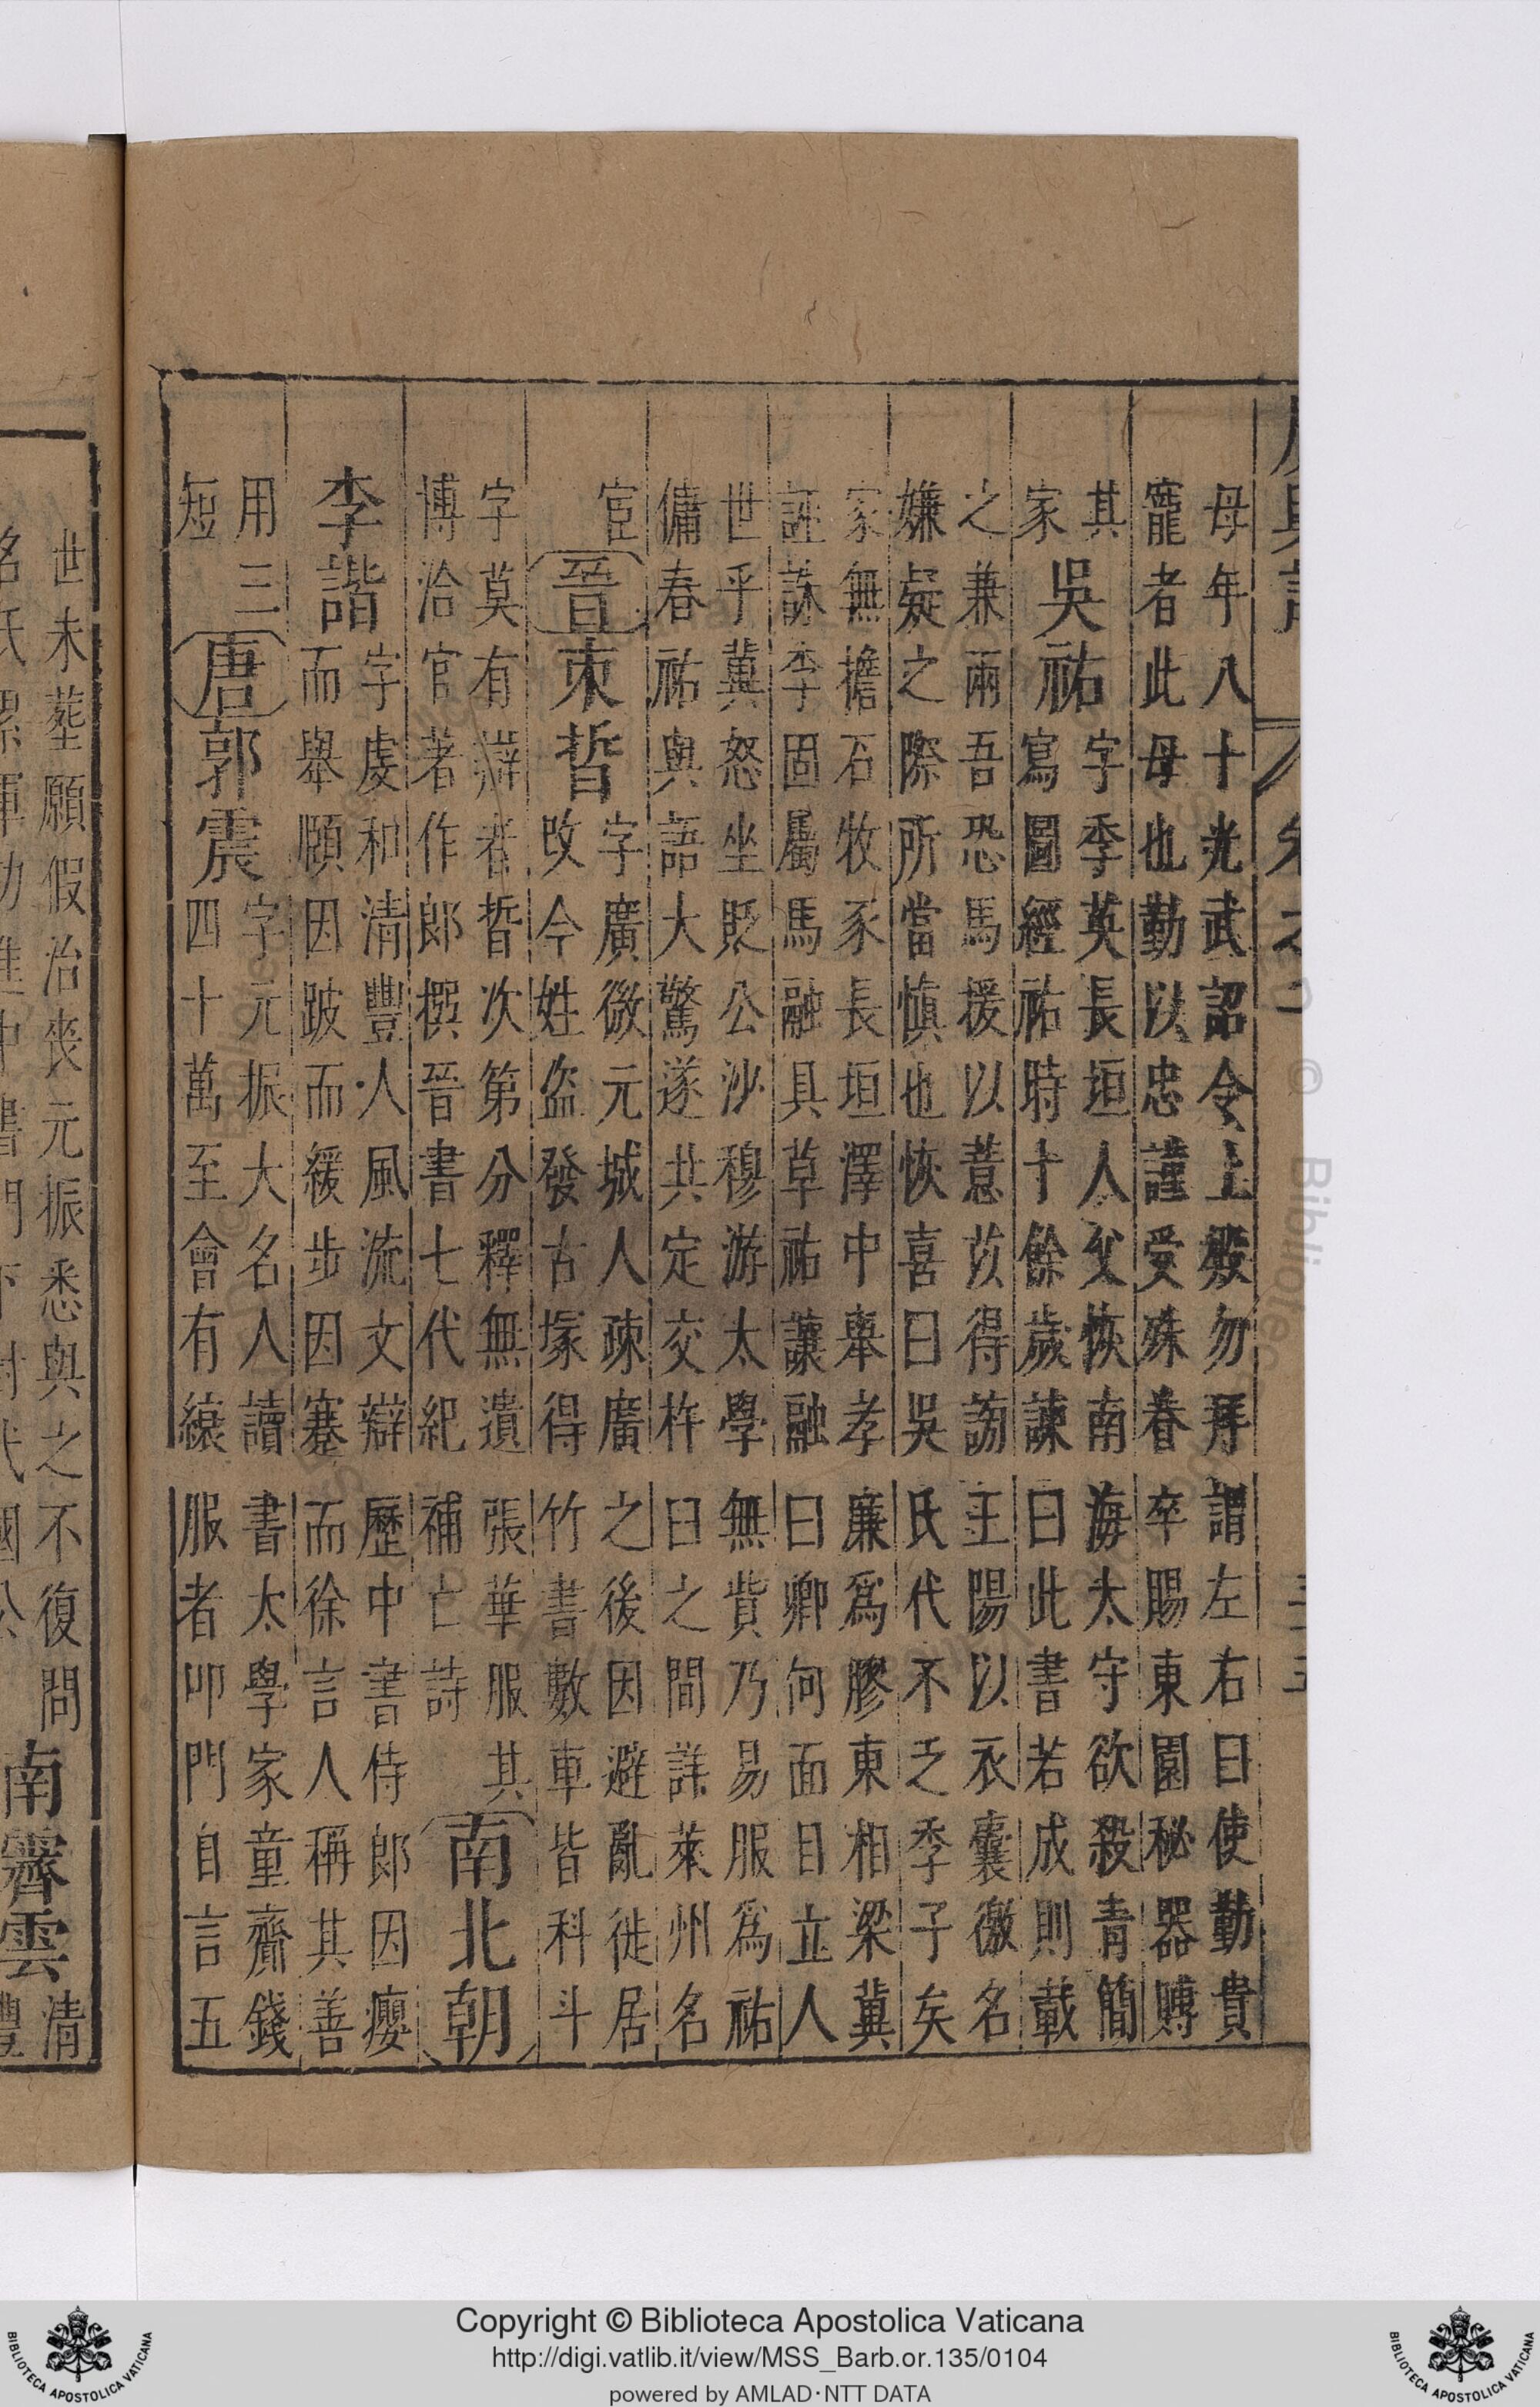 母年八十光武詔令上殿勿拜謂左右曰使勤貴
寵者此母也勤以忠謹受殊眷卒賜東園秘器賻
其
家
吳祐
字季英長垣人父恢南海太守欲殺青簡
寫圖經祐時十餘歲諫曰此書若成則載
之兼兩吾恐馬援以薏苡得謗王陽以衣囊徼名
嫌疑之際所當慎也恢喜曰吳氏代不乏季子矣
家無擔石牧豕長垣澤中舉孝廉爲膠東相梁冀
誣誅李固屬馬融具草祐讓融曰卿何面目立人
世乎冀怒坐貶公沙穆游太學無貲乃易服爲祐
傭春祐與語大驚遂共定交杵臼之間詳萊州名
宦
晉
束晳
字廣微元城人疎廣之後因避亂徙居
改今姓盜發古塚得竹書數車皆科斗
字莫有辯者晳次第分釋無遺張華服其
博洽官著作郎撰晉書七代紀補亡詩
南北朝
李諧
字虔和清豐人風流文辯歷中書侍郎因癭
而舉頤因跛而緩步因蹇而徐言人稱其善
用三
短
唐
郭震
字元振大名人讀書太學家童齎錢
四十萬至會有縗服者叩門自言五
世未葬願假治喪元振悉與之不復問
南霽雲
清
Copyright © Biblioteca Apostolica Vaticana
http://digi.vatlib.it/view/MSS_Barb.or.135/0104
powered by AMLAD·NTT DATA
BIBLIOTECA APOSTOLICA VATICANA
BIBLIOTECA APOSTOLICA VATICANA